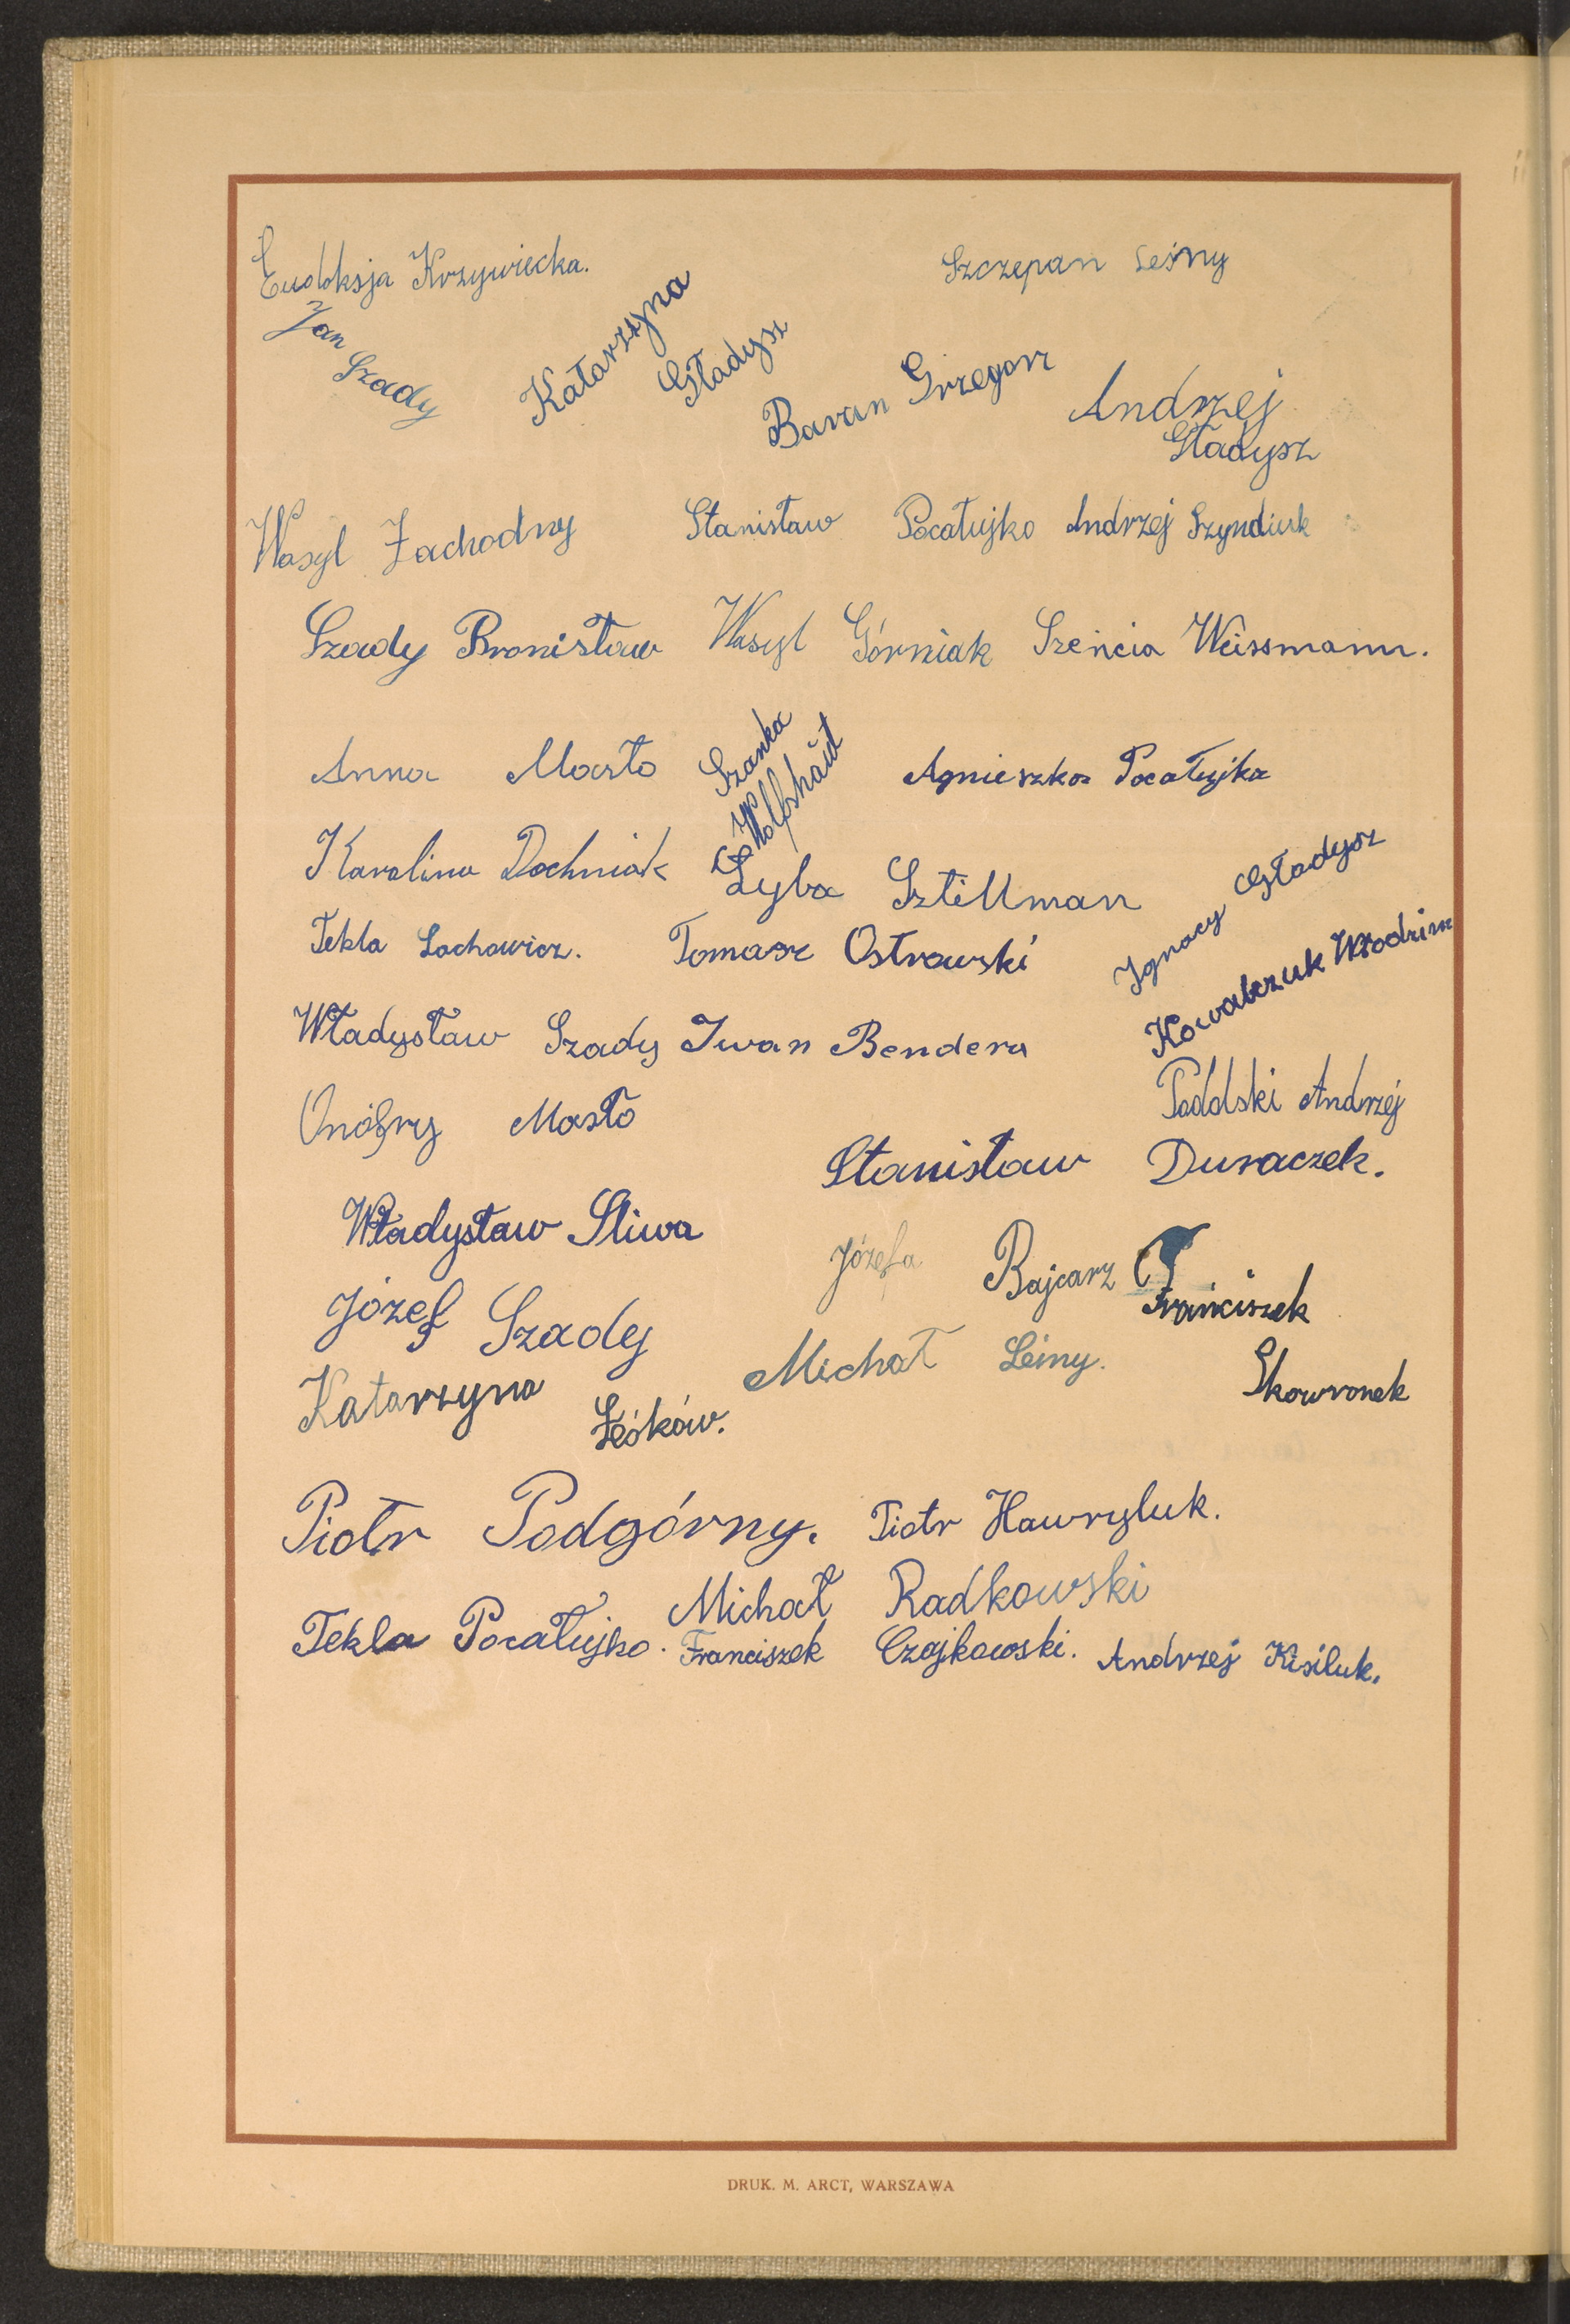 Eudoksja Krzywiecka.
Szczepan Leśny
Jan Szady
Katarzyna Gładysz
Baran Grzegorz
Andrzej
Gładysz
Wasyl Zachodny
Stanisław Pocałujko Andrzej Szyndiuk
Szady Bronisław Wasyl Górniak Szeńcia Weissmann.
Anna Masło
Szanka
Agnieszka Pocałujka
Karolina Dochniak
Zyba Sztillman
Ignacy Gładysz
Tekla Lachowicz. Tomasz Ostrowski
Kowalczuk Włodzim
Władysław Szady Iwan Bendera
Onófry Masło
Andrzéj
Stanisław Duraczek.
Władysław Sliwa
Józefa Bajcarz
Franciszek
Skowronek
Józef Szady
Michał Leśny.
Katarzyna
Piotr Podgórny. Piotr Hawryluk.
Michał Radkowski
Tekla Pocałujko. Franciszek Czajkowski. Andrzej Kisiluk.
DRUK. M. ARCT, WARSZAWA